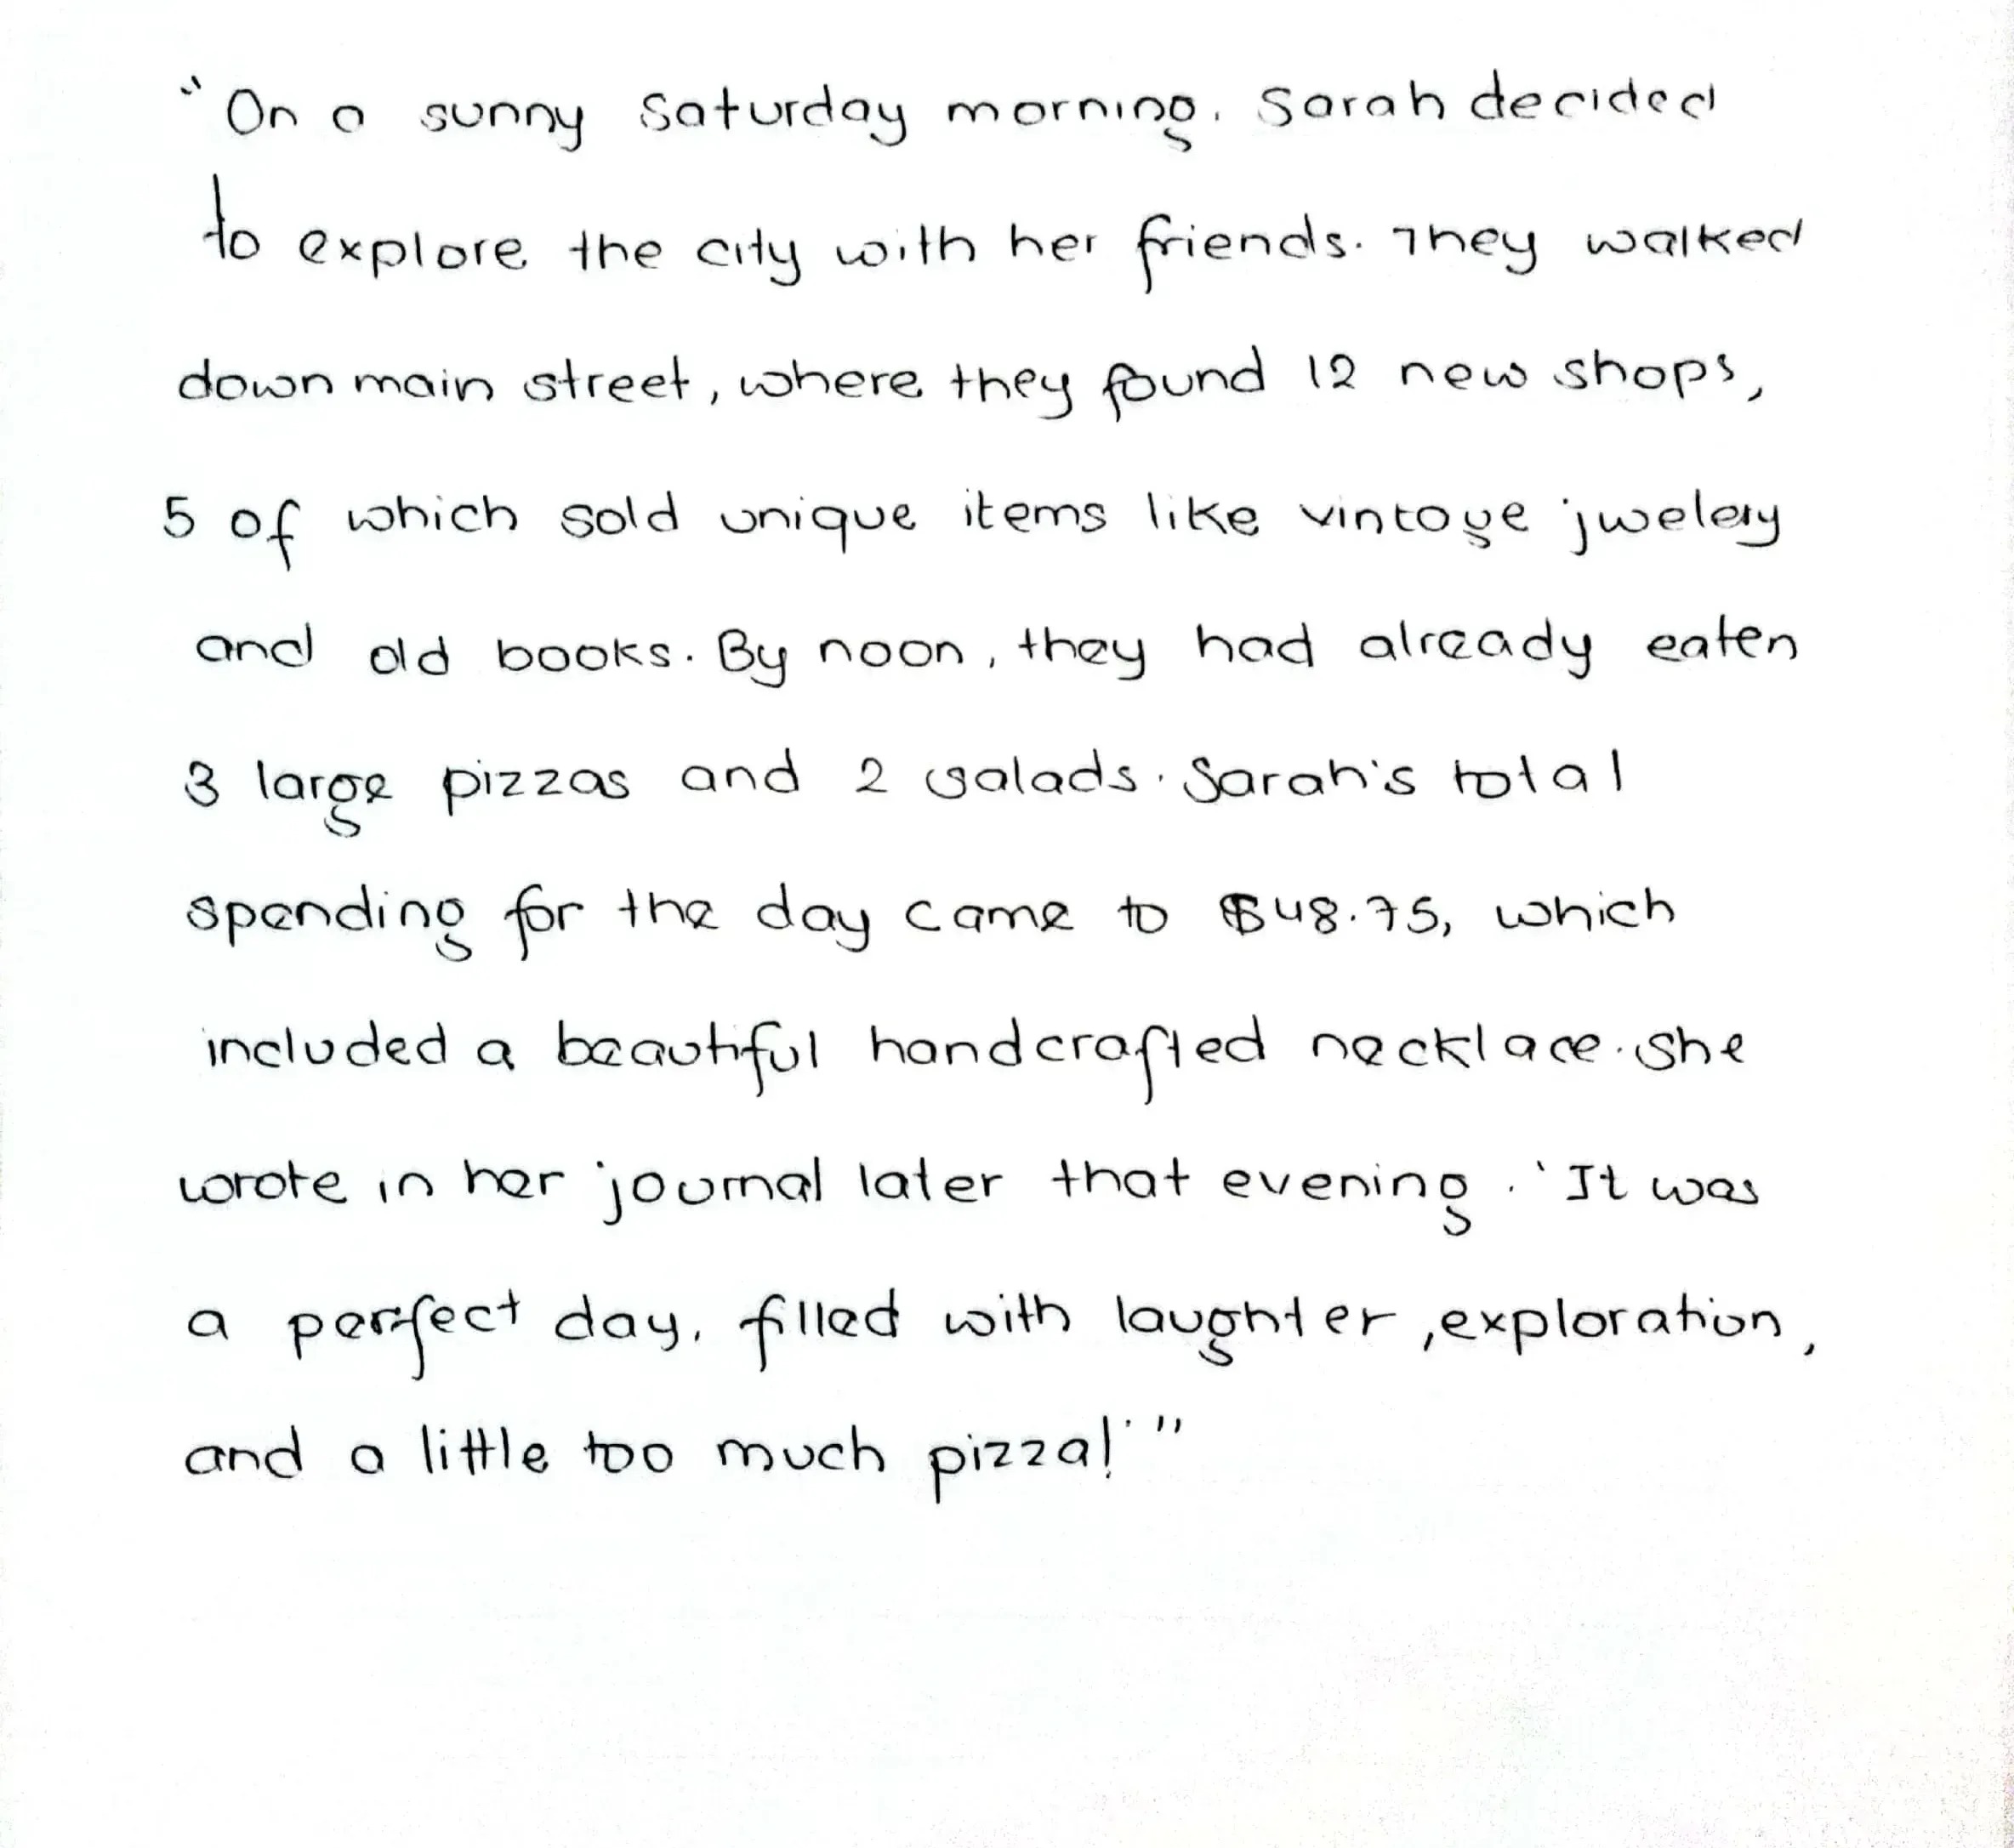 "On a sunny Saturday morning, Sarah decided
to explore the city with her friends. They walked
down main street, where they found 12 new shops,
5 of which sold unique items like vintage jwelery
and old books. By noon, they had already eaten
3 large pizzas and 2 salads. Sarah's total
spending for the day came to $48.75, which
included a beautiful handcrafted necklace. she
wrote in her journal later that evening. 'It was
a perfect day, filled with laughter, exploration,
and a little too much pizza!'"